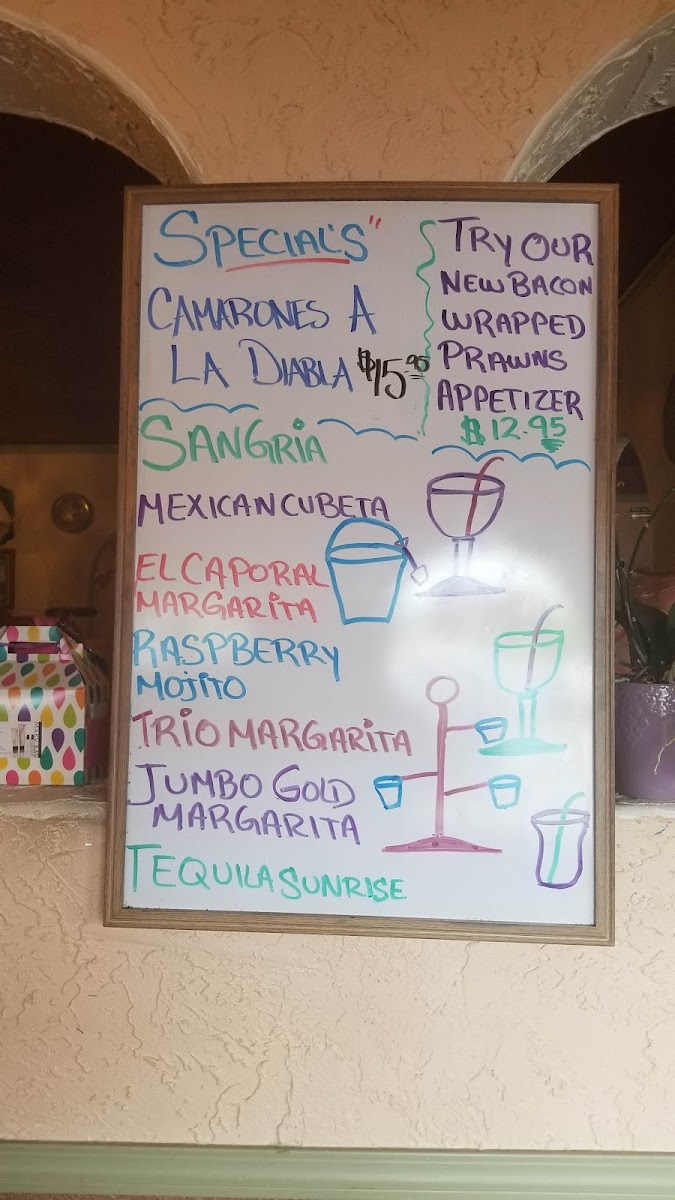 SPECIAL'S"
CAMARONES A
LA DIABLA $15.95
TRY OUR
NEW BACON
WRAPPED
PRAWNS
APPETIZER
$12.95
SANGRIA
MEXICAN CUBETA
EL CAPORAL
MARGARITA
RASPBERRY
MOJITO
TRIO MARGARITA
JUMBO GOLD
MARGARITA
TEQUILA SUNRISE